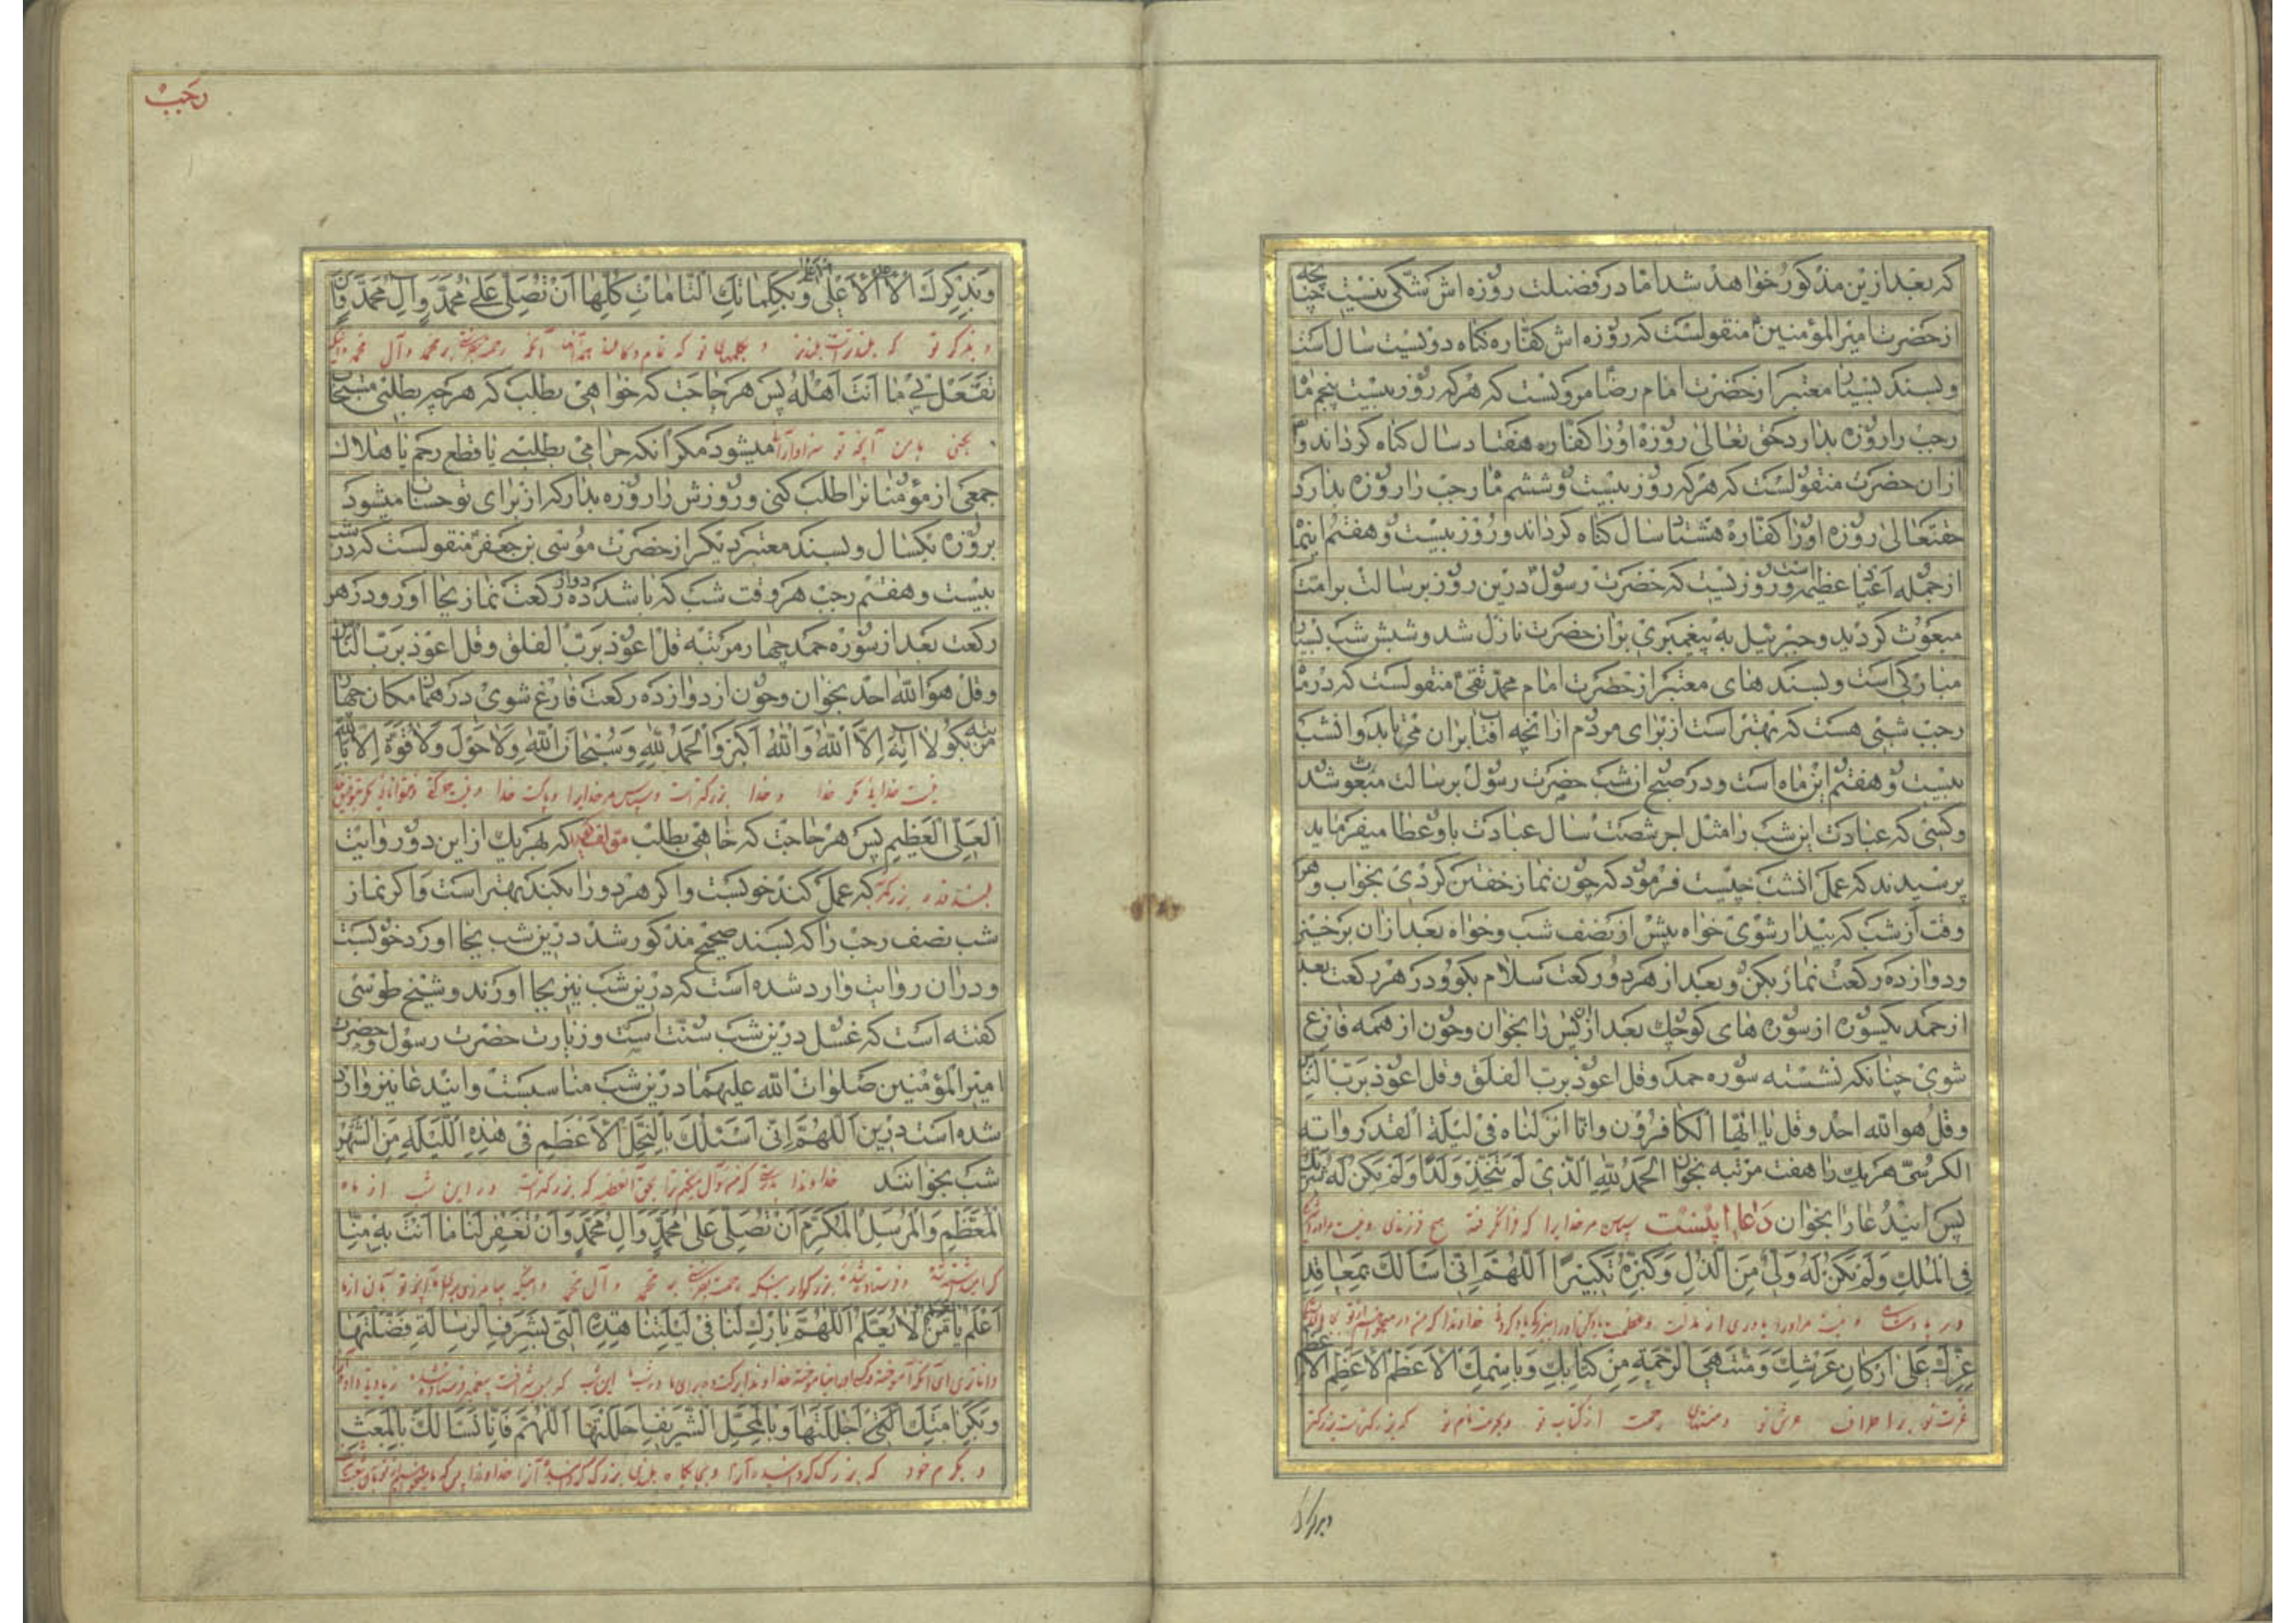 که بعد ازین مذکور خواهد شد اما در فضیلت روزه اش شکی نیست چنانچه
از حضرت امیر المؤمنین منقولست که روزه اش کفاره کناه دویست سال است
و بسند بسیار معتبر از حضرت امام رضا مرویست که هرکه روز بیست پنجم ماه
رجب را روزه بدارد حق تعالی روزه او را کفاره هفتاد سال کناه کرداند و
ازان حضرت منقولست که هرکه روز بیست و ششم ماه رجب را روزه بدارد
حقتعالی روزه او را کفاره هشتاد سال کناه کرداند و روز بیست و هفتم اینماه
از جمله اعیاد عظیمه است و روزیست که حضرت رسول درین روز برسالت بر امت
مبعوث کردید و جبرئیل به پیغمبری بران حضرت نازل شد و شبش شب بسیار
مبارکی است و بسند های معتبر از حضرت امام محمد تقی منقولست که در ماه
رجب شبی هست که بهتر است از برای مردم از انچه افتاب بران می تابد و انشب
بیست و هفتم این ماه است و در صبح ان شب حضرت رسول برسالت مبعوث شد
و کسی که عبادت این شب را مثل اجر شصت سال عبادت باو عطا میفرماید
پرسیدند که عمل انشب چیست فرمود که چون نماز خفتن کردی بخواب و هر
وقت از شب که بیدار شوی خواه پیش از نصف شب و خواه بعد ازان برخیز
و دوازده رکعت نماز بکن و بعد از هر دو رکعت سلام بکو و در هر رکعت بعد
از حمد یکسوره از سوره های کوچک بعد از یس را بخوان و چون از همه فارغ
شوی چنانکه نشسته سوره حمد و قل اعوذ برب الفلق و قل اعوذ برب الناس
و قل هو الله احد و قل یا ایها الکافرون و انا انزلناه فی لیلة القدر و ایة
الکرسی هریک را هفت مرتبه بخوان الحمد لله الذی لم یتخذ ولدا و لم یکن له شریک
پس ایندعا را بخوان دعا اینست سپاس مر خدایرا که فرا نکرفته هیچ فرزندی و نیست مر او را
فی الملک ولم یکن له ولی من الذل و کبره تکبیرا اللهم انی اسالک بمعاقد
و نیست مر او را یاوری از مذلت
عزک علی ارکان عرشک و منتهی الرحمة من کتابک و باسمک الاعظم الاعظم الاعظم
عزت تو بر اطراف عرش تو و منتهای رحمت از کتاب تو و بحرمت نام تو که بزرکتر است بزرکتر
و بذکرک
رجب
و بذکرک الاعلی الاعلی الاعلی و بکلماتک التامات کلها ان تصلی علی محمد و ال محمد و ان
و بذکر تو که بلندتر است بلندتر و بکلمهای تو که تمام و کاملند همه آنها آنکه رحمت بفرستی بر محمد و آل محمد و اینکه
تفعل بی ما انت اهله پس هر حاجت که خواهی بطلب که هرچه بطلبی مستجاب
بکنی بمن آنچه تو سزاوار آنی میشود مکر انکه حرامی بطلبی یا قطع رحم یا هلاک
جمعی از مؤمنانرا طلب کنی و روزش را روزه بدار که از برای تو حساب میشود
بروزه یکسال و بسند معتبر دیکر از حضرت موسی بن جعفر منقولست که در شب
بیست و هفتم رجب هر وقت شب که باشد دوازده رکعت نماز بجا اور و در هر
رکعت بعد از سوره حمد چهار مرتبه قل اعوذ برب الفلق و قل اعوذ برب الناس
و قل هو الله احد بخوان و چون از دوازده رکعت فارغ شوی در همان مکان چهار
مرتبه بکو لا اله الا الله والله اکبر والحمد لله وسبحان الله ولا حول ولا قوة الا بالله
نیست خدایی مکر خدا و خدا بزرکتر است و سپاس مر خدایرا و پاکست خدا
العلی العظیم پس هر حاجت که خاهی بطلب مؤلف کوید که بهریک از این دو روایت
بلند قدر بزرکتر که عمل کند خوبست و اکر هر دو را بکند بهتر است و اکر نماز
شب نصف رجب را که بسند صحیح مذکور شد درین شب بجا اورد خوبست
و دران روایت وارد شده است که درین شب نیز بجا اورند و شیخ طوسی
کفته است که غسل درین شب سنت است و زیارت حضرت رسول و حضرت
امیر المؤمنین صلوات الله علیهما درین شب مناسبست و ایندعا نیز وارد
شده است درین اللهم انی اسئلک بالتجل الاعظم فی هذه اللیلة من الشهر
شب بخوانند خداوندا بدرستی که من سؤال میکنم ترا بحق که بزرکتر است در این شب از ماه
المعظم والمرسل المکرم ان تصلی علی محمد و ال محمد و ان تغفر لنا ما انت به منا
رحمت بفرستی بر محمد و آل محمد و اینکه بیامرزی
اعلم یا من یعلم ولا یعلم اللهم بارک لنا فی لیلتنا هذه التی بشرف الرسالة فضلتها
وبکرامتک التی اجللتها وبالمحل الشریف احللتها اللهم فانا نسالک بالمبعث
و بکرم خود که بزرک کردانیده آنرا